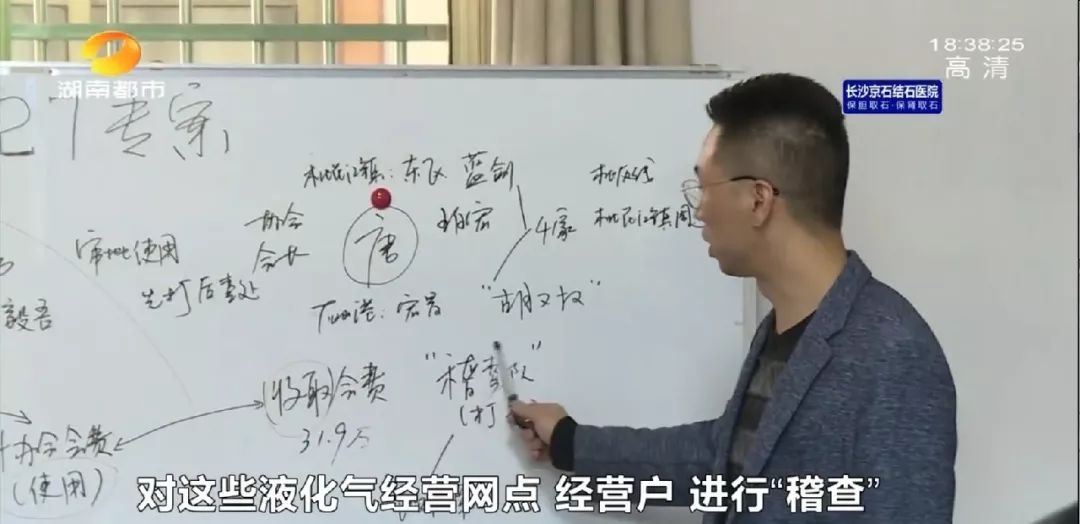 18:38:25
高清
湖南都市
长沙京石结石医院
保胆取石·保肾取石
27专案
桃花江镇: 东飞 蓝剑
协会
会长
唐
4家
桃花江镇周
审批使用
先打后查处
毅吾
宏
"胡又
(收取)会费
31.9万
"稽查队"
(打
协会会费
(使用)
对这些液化气经营网点 经营户 进行“稽查”